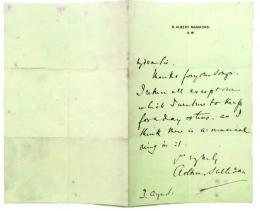 9, ALBERT MANSIONS,
S.W.
My dear Sir,
Thanks for your songs.
I return all except one
which I venture to keep
for a day or two. as I
think there is a musical
ring in it.
Yrs
Arthur Sullivan